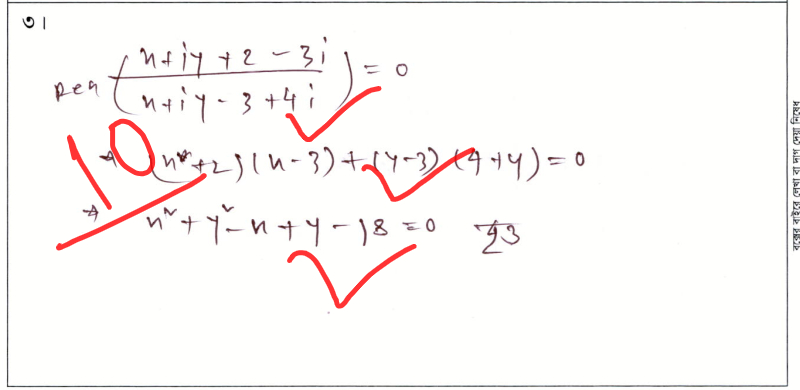 ৩।
Real (x+iy+2-3i / x+iy-3+4i) = 0
10
⇒ (x+2)(x-3)+(y-3)(4+y)=0
⇒ x²+y²-x+y-18=0
বক্সের বাইরে লেখা বা দাগ দেয়া নিষেধ